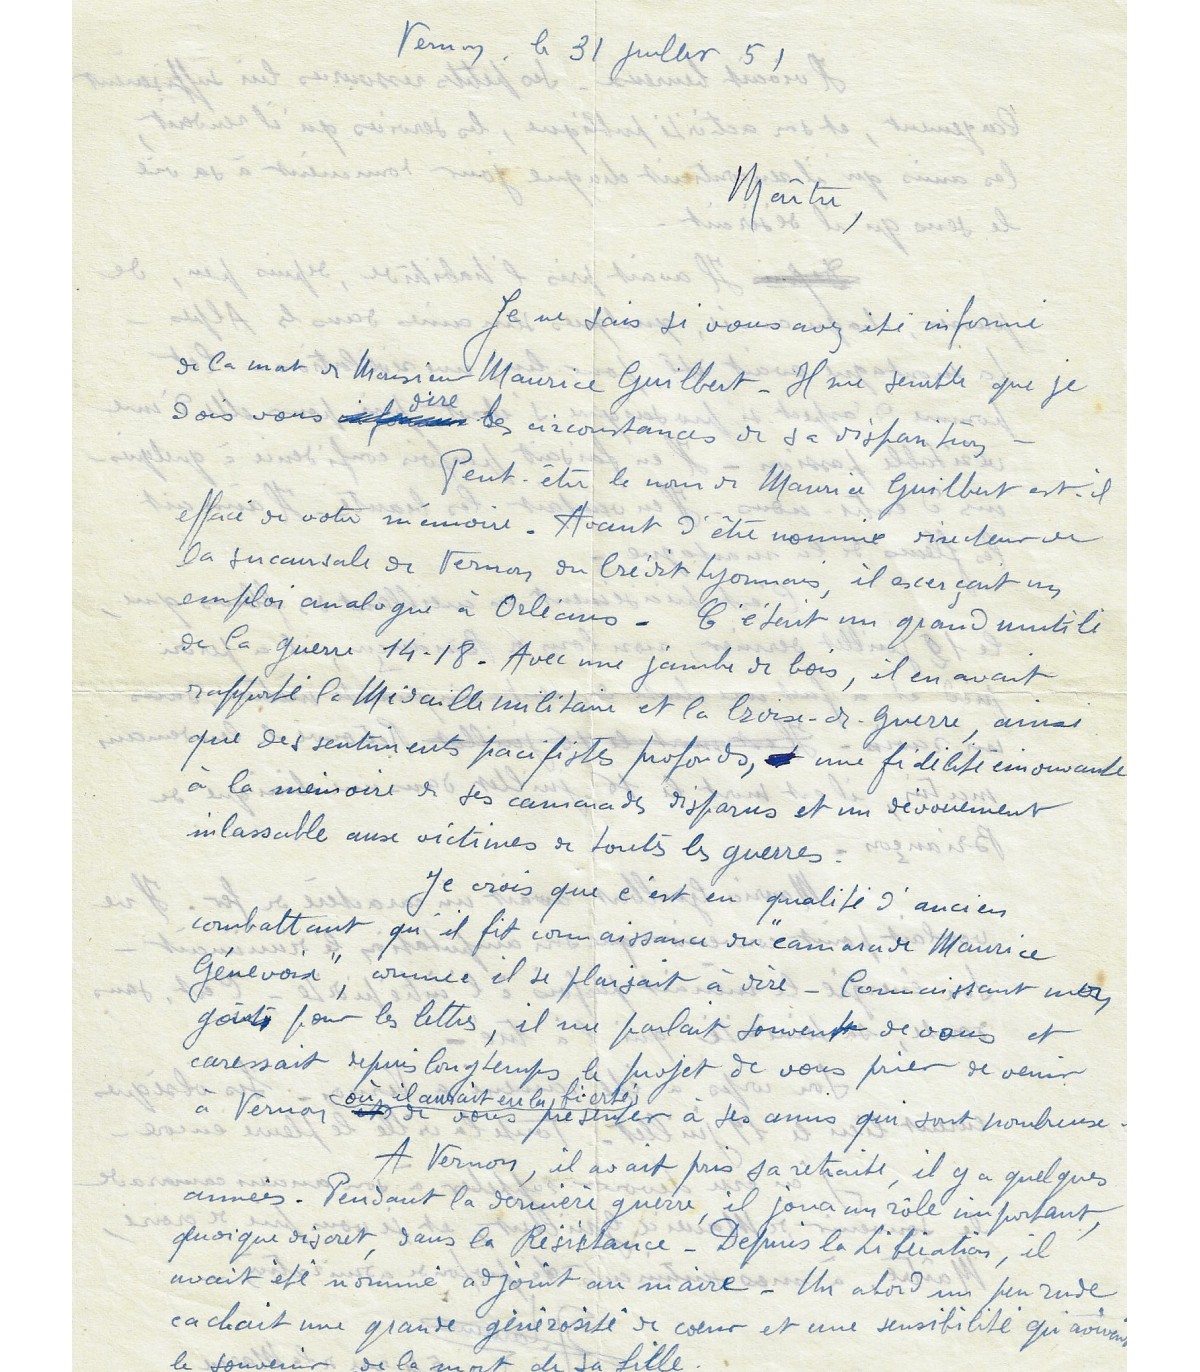 Vernon, le 31 juillet 51
Maître,
Je ne sais si vous avez été informé
de la mort de Monsieur Maurice Guilbert - Il me semble que je
dois vous dire les circonstances de sa disparition -
Peut-être le nom de Maurice Guilbert est-il
effacé de votre mémoire - Avant d'être nommé directeur de
la succursale de Vernon du Crédit Lyonnais, il exerçait un
emploi analogue à Orléans - C'était un grand mutilé
de la guerre 14-18 - Avec une jambe de bois, il en avait
rapporté la Médaille militaire et la Croix-de-Guerre, ainsi
que des sentiments pacifistes profonds, une fidélité émouvante
à la mémoire de ses camarades disparus et un dévouement
inlassable aux victimes de toutes les guerres.
Je crois que c'est en qualité d'ancien
combattant qu'il fit connaissance du "camarade Maurice
Génevoix", comme il se plaisait à dire - Connaissant mes
goûts pour les lettres, il me parlait souvent de vous et
caressait depuis longtemps le projet de vous prier de venir
à Vernon où il aurait eu la fierté de vous présenter à ses amis qui sont nombreux -
A Vernon, il avait pris sa retraite, il y a quelques
années - Pendant la dernière guerre, il joua un rôle important,
quoique discret, dans la Résistance - Depuis la Libération, il
avait été nommé adjoint au maire - Un abord un peu rude
cachait une grande générosité de cœur et une sensibilité qu'avivait
le souvenir de la mort de sa fille.